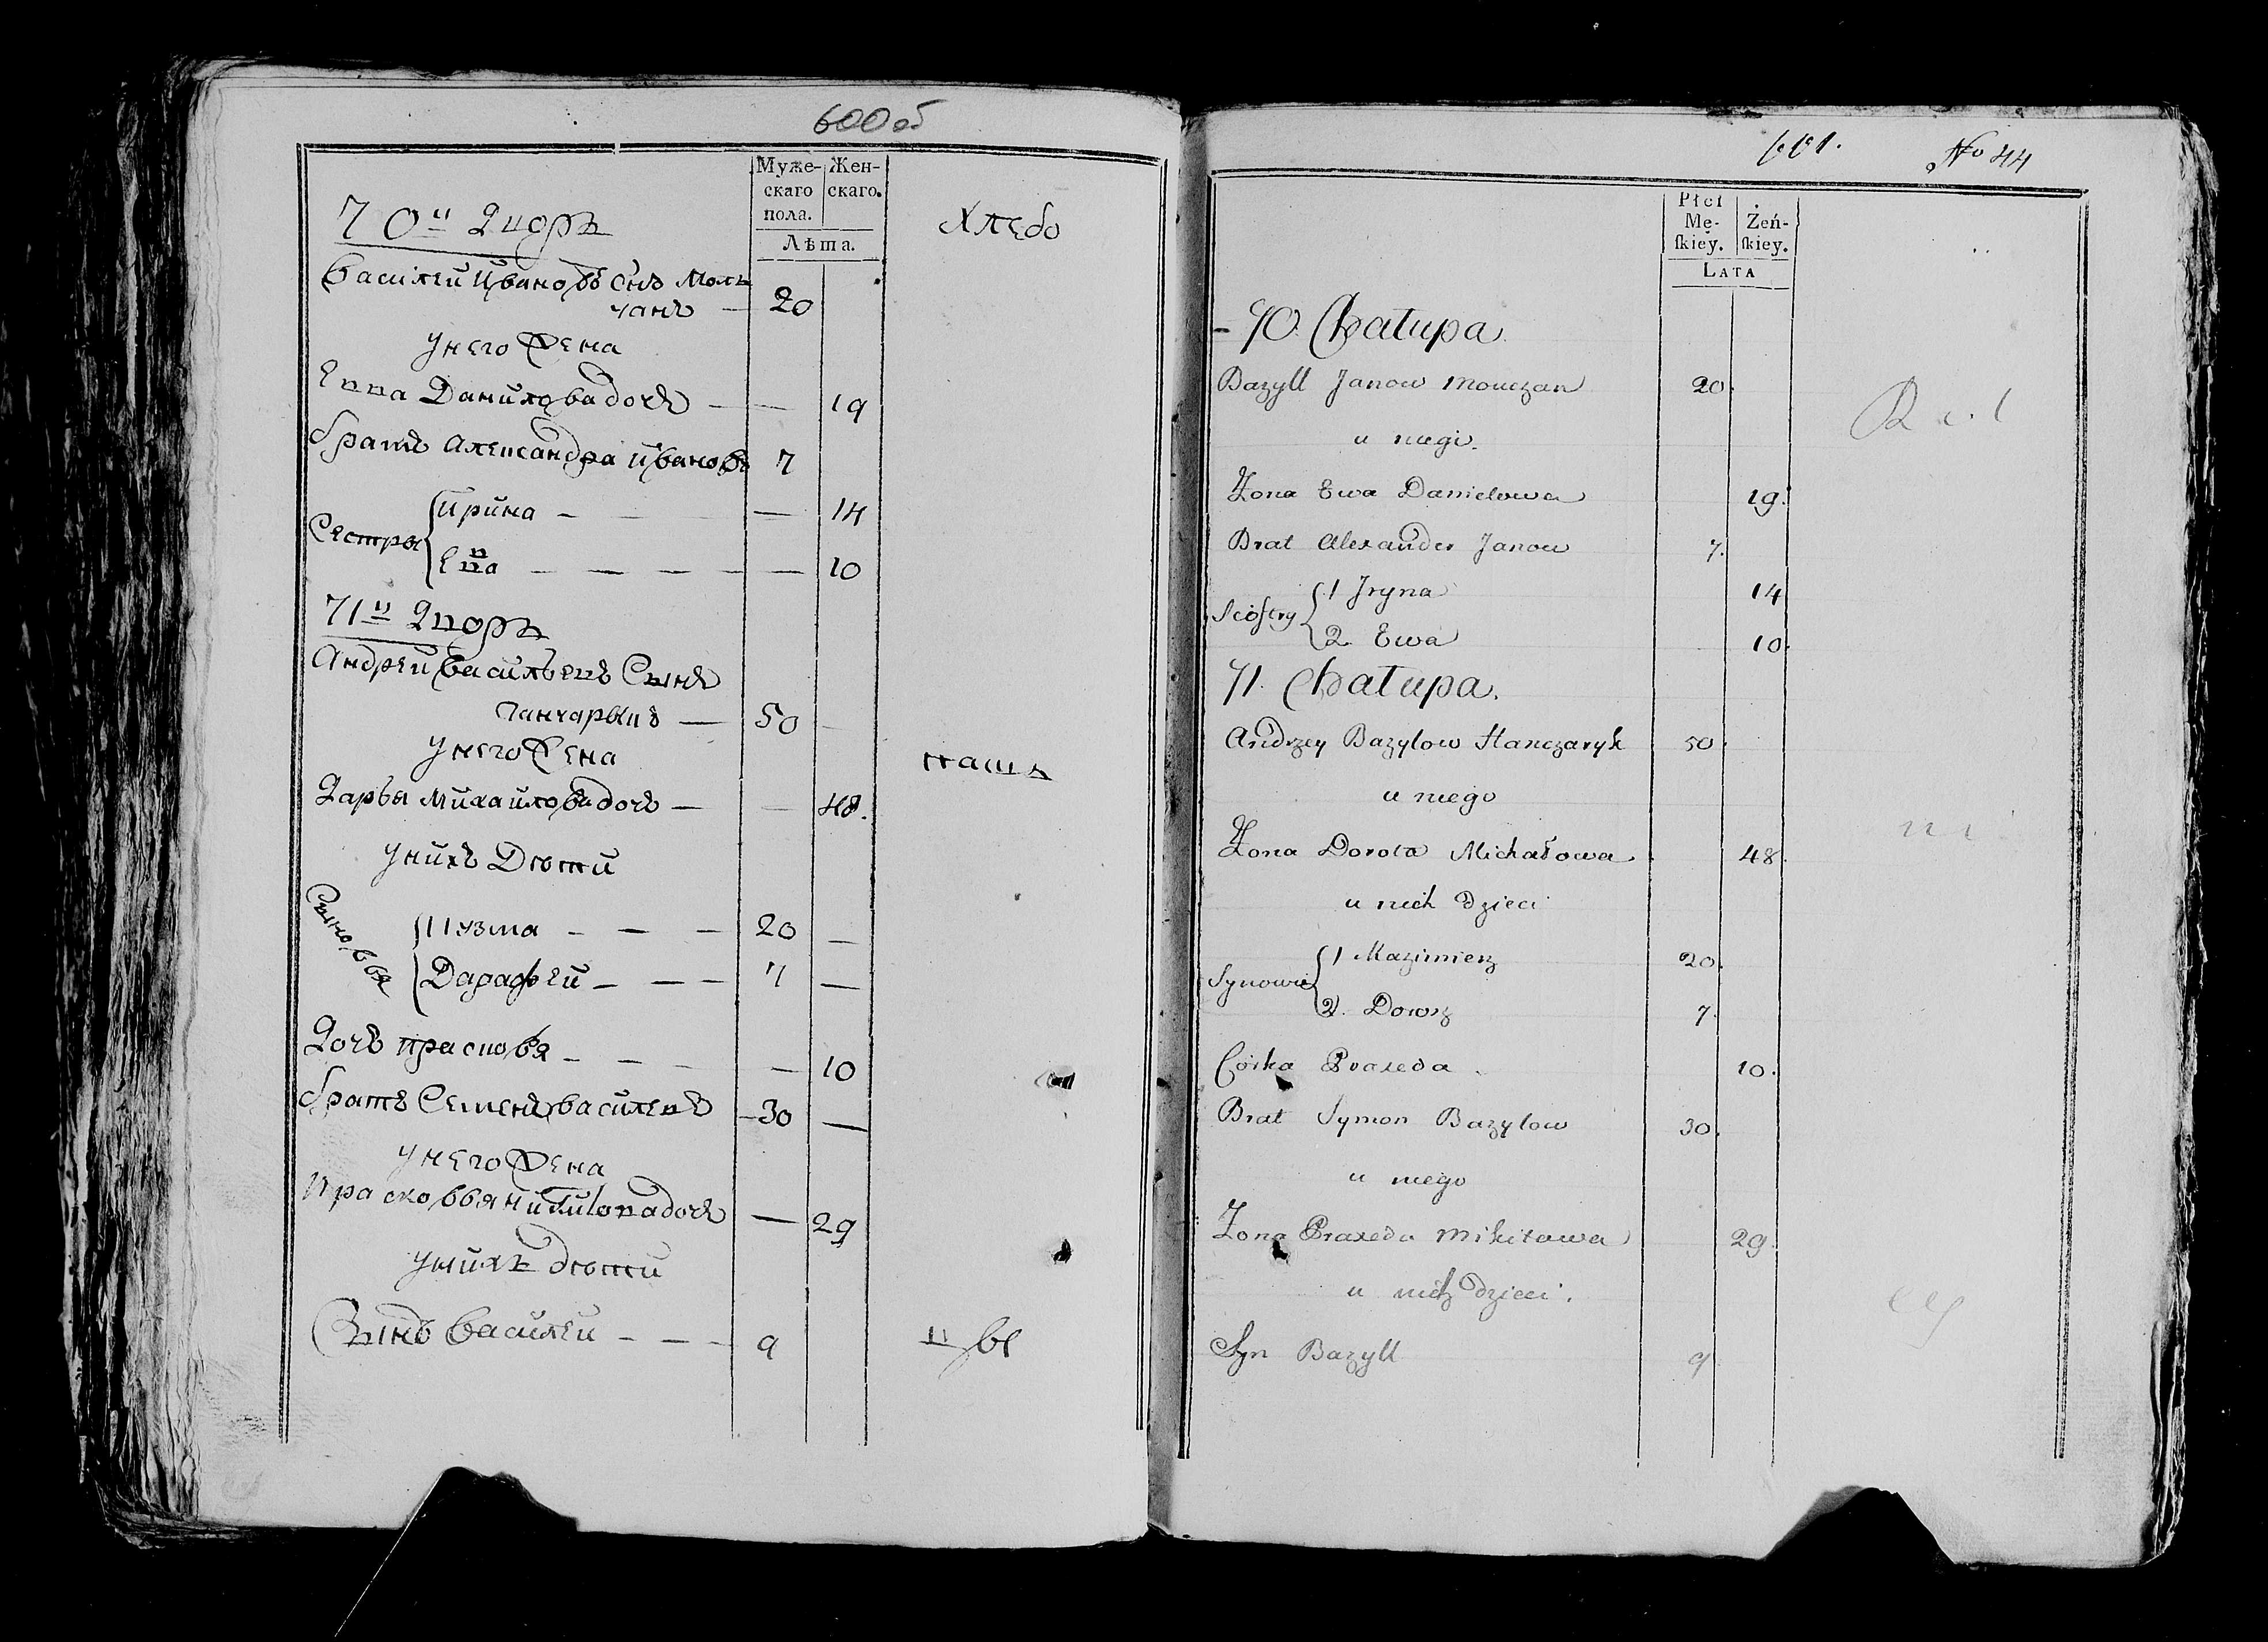 600 об
Муже- Жен-
скаго скаго.
пола.
Лѣта.
70й Дворъ
Хлѣбо
Василей Ивановъ Снъ Мол
чанъ — 20
У него Жена
Евва Данилова дочь — — 19
братъ Александра Ивановъ 7
Сестры
Ирина — — 14
Евва — — — — — 10
71й Дворъ
Андрей Васильевъ Сынъ
Ганчарыкъ — 50 —
У него Жена
паш
Дарья Михайлова дочь — — 48.
У нихъ Дѣти
Сыновья
Кузма — — — 20 —
Дарафѣй — — — 7 —
Дочь Прасковя — — — — 10
братъ Семенъ Василевъ — 30 —
У него Жена
Прасковья Никитова дочь — 29
У нихъ дѣти
Сынъ Василей — — — 9
цы
601.
No 44
Płci
Mę- Żeń-
ſkiey. ſkiey.
LATA
70. Chałupa.
Bazyll Janow Mouczan 20.
u niego.
Żona Ewa Danielowa 19.
Brat Alexander Janow 7.
Siostry
1 Jryna 14
2. Ewa 10.
71. Chałupa.
Andrzey Bazylow Hanczaryk 50.
u niego
Żona Dorota Michałowa. 48.
u nich dzieci
Synowie
1 Kazimierz 20.
2. Dorosz 7.
Córka Praxeda 10.
Brat Symon Bazylow 30.
u niego
Żona Praxeda Mikitowa 29.
u nich dzieci.
Syn Bazyll 9